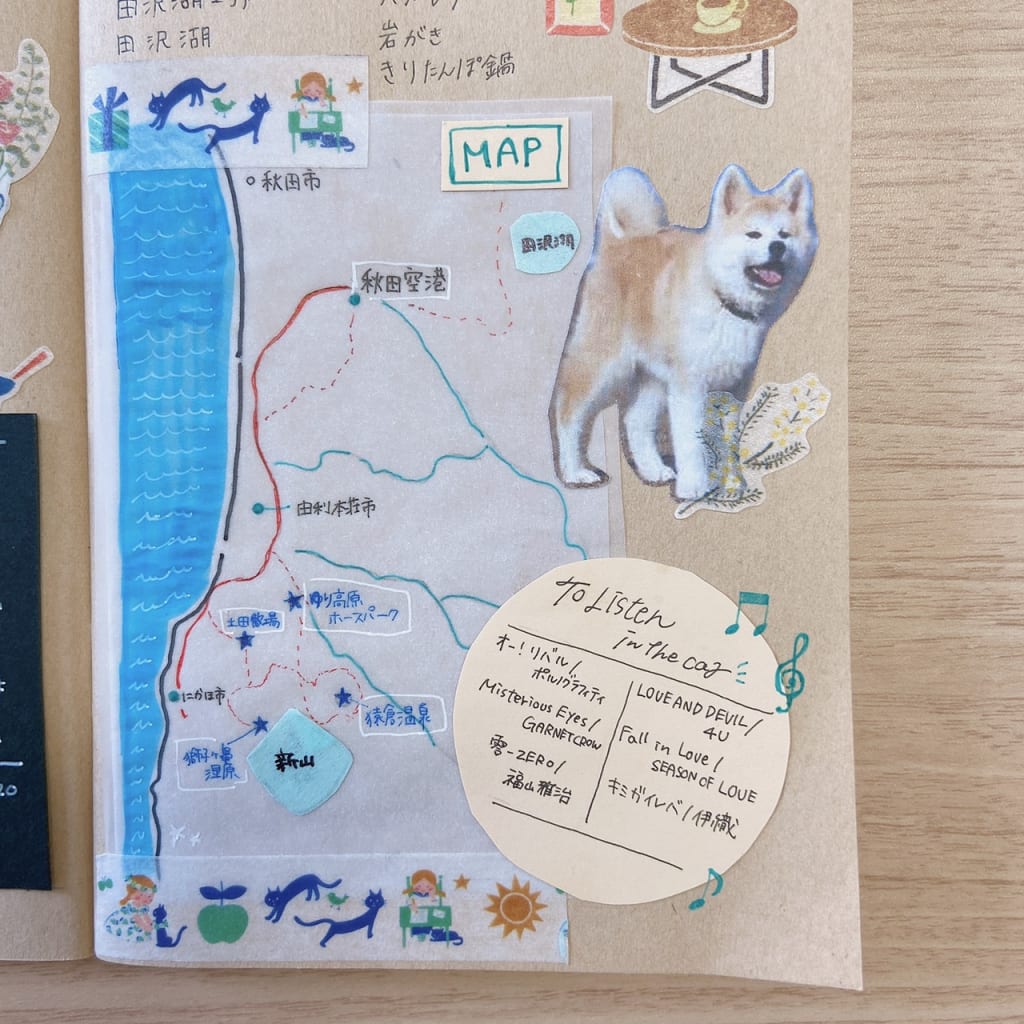 田沢湖
岩がき
きりたんぽ鍋
MAP
秋田市
田沢湖
秋田空港
由利本荘市
ゆり高原
ホースパーク
土田牧場
にかほ市
猿倉温泉
獅子ヶ鼻
湿原
新山
To Listen
in the car
オー!リバル/
ポルノグラフィティ
Misterious Eyes/
GARNET CROW
零-ZERO/
福山雅治
LOVE AND DEVIL/
4U
Fall in Love/
SEASON OF LOVE
キミガイレバ/伊織
20